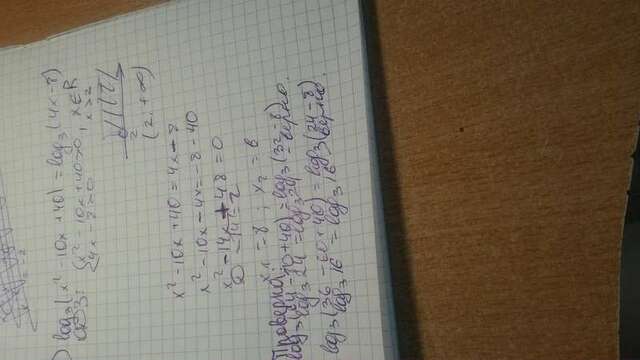 log₃(x² - 10x + 40) = log₃(4x - 8)
ОДЗ: { x² - 10x + 40 > 0, x ∈ R
4x - 8 > 0 x > 2
2
(2; +∞)
x² - 10x + 40 = 4x - 8
x² - 10x - 4x = -8 - 40
x² - 14x + 48 = 0
x₁ = 8 ; x₂ = 6
Проверка:
log₃(64 - 80 + 40) = log₃(32 - 8)
log₃24 = log₃24 верно.
log₃(36 - 60 + 40) = log₃(24 - 8)
log₃16 = log₃16 верно.